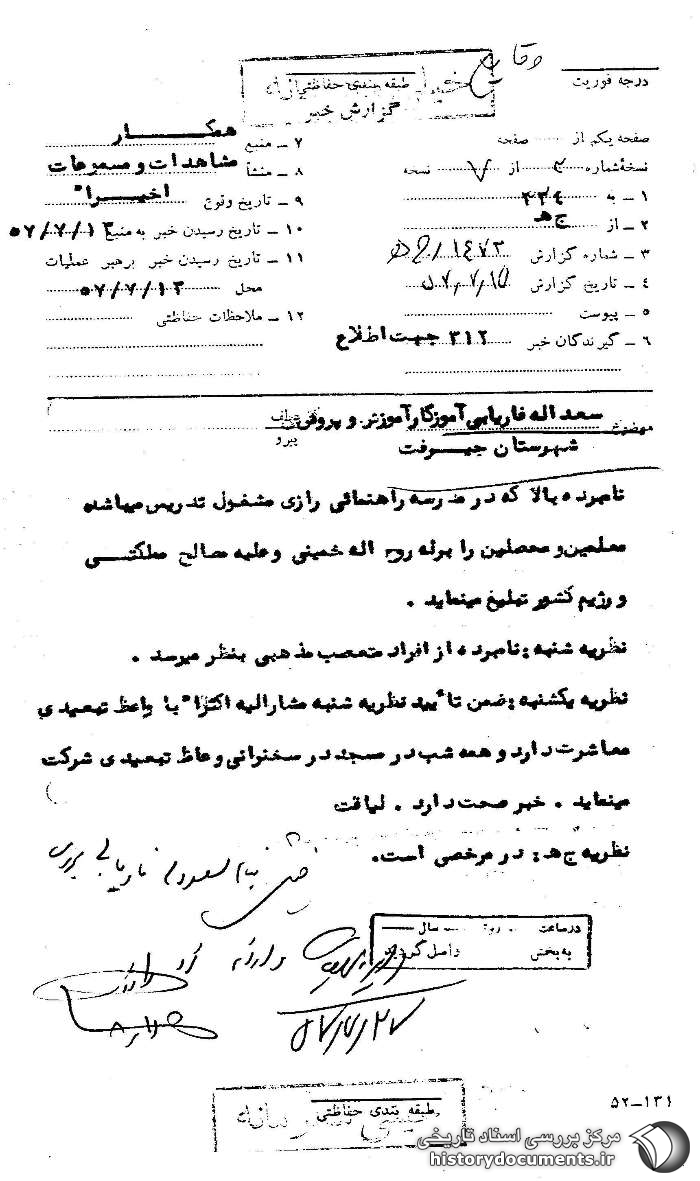 وقایع
درجه فوریت
طبقه بندی حفاظتی
گزارش خبر
صفحه یکم از صفحه
نسخهٔ شماره ۲ از ۷ نسخه
۱ - به ۳۳۴
۲ - از ج ه
۳ - شماره گزارش ۱۴۷۳/ ج ه
۴ - تاریخ گزارش ۵۷/۷/۱۵
۵ - پیوست
۶ - گیرندگان خبر ۳۱۲ جهت اطلاع
۷ - منبع همکار
۸ - منشأ مشاهدات و مسموعات
۹ - تاریخ وقوع اخیراً
۱۰ - تاریخ رسیدن خبر به منبع ۵۷/۷/۱۳
۱۱ - تاریخ رسیدن خبر برهبر عملیات
محل ۵۷/۷/۱۳
۱۲ - ملاحظات حفاظتی
موضوع سعداله فاریابی آموزگار آموزش و پرورش
شهرستان جیرفت
عطف
پیرو
نامبرده بالا که در مدرسه راهنمائی رازی مشغول تدریس میباشد
معلمین و محصلین را برله روح اله خمینی و علیه مصالح مملکتی
و رژیم کشور تبلیغ مینماید .
نظریه شنبه : نامبرده از افراد متعصب مذهبی بنظر میرسد .
نظریه یکشنبه : ضمن تأیید نظریه شنبه مشارالیه اکثراً با واعظ تبعیدی
معاشرت دارد و همه شب در مسجد در سخنرانی وعاظ تبعیدی شرکت
مینماید . خبر صحت دارد . لیاقت
نظریه ج ه : در مرخصی است .
در ساعت روز سال
به بخش واصل گردید
۵۷/۷/۲۷
طبقه بندی حفاظتی
۵۲-۱۳۱
مرکز بررسی اسناد تاریخی
historydocuments.ir